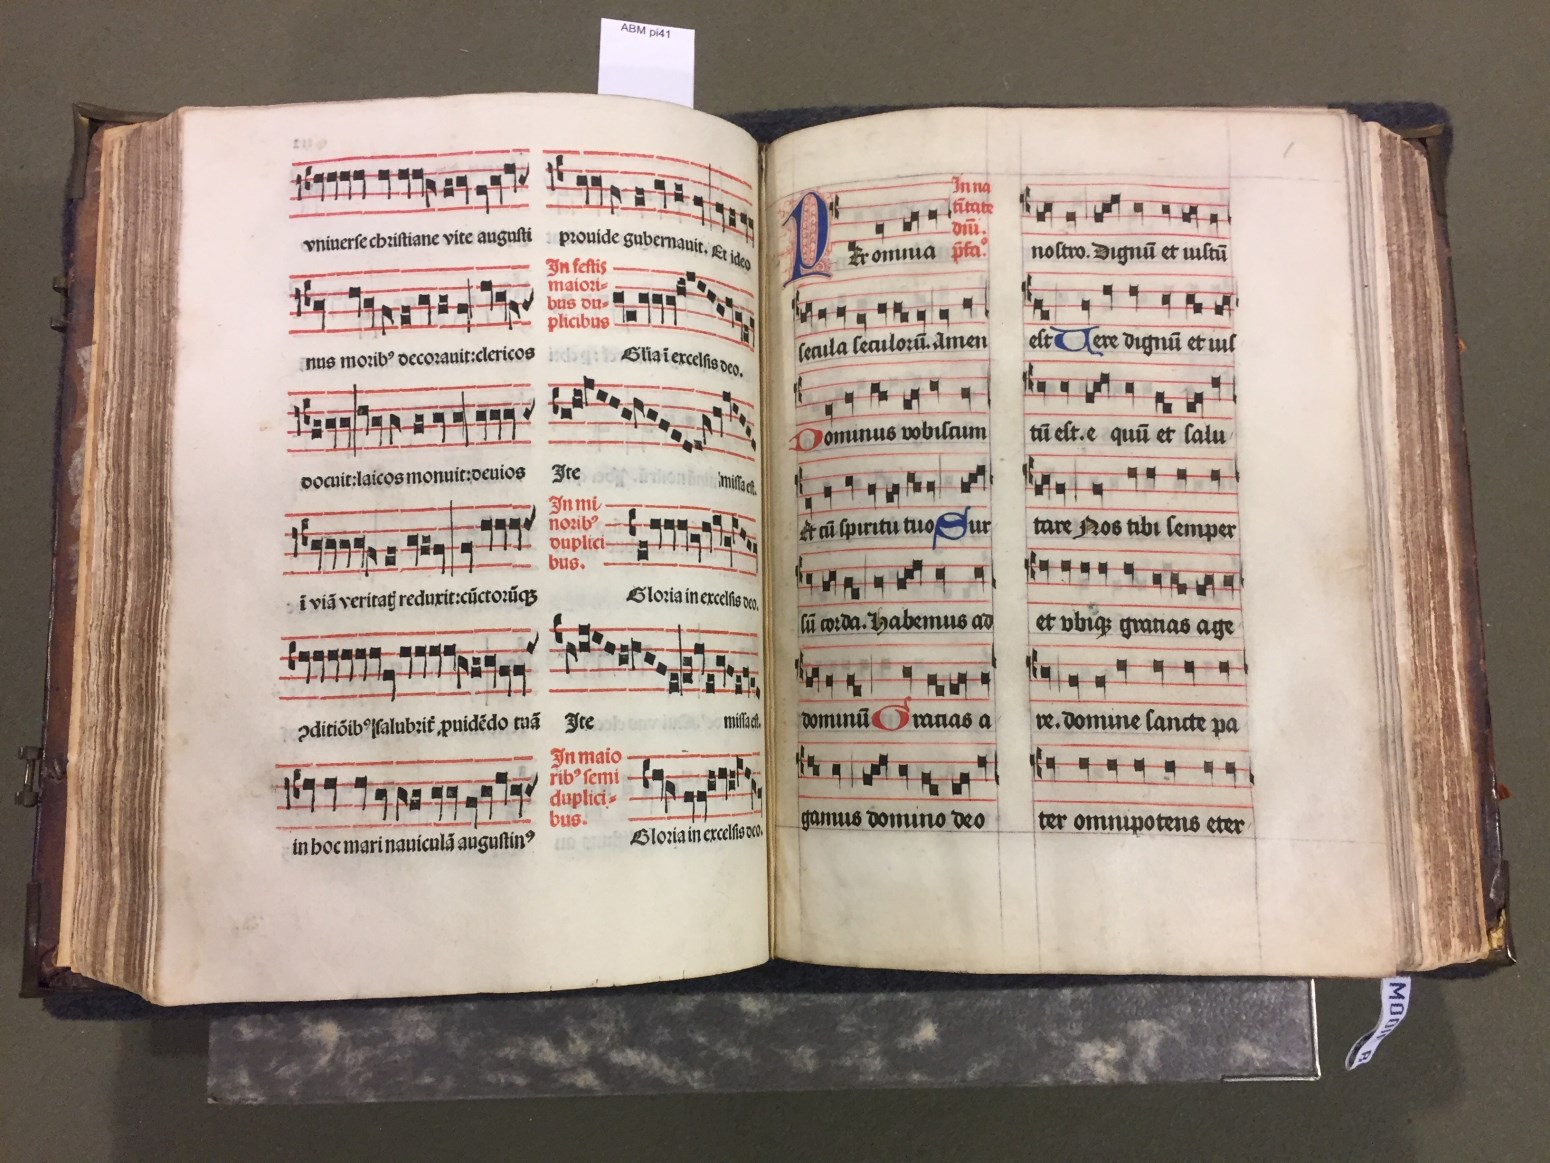 ABM pi41
vniuerse christiane vite augusti
nus moribꝰ decorauit:clericos
docuit:laicos monuit:deuios
ī viā veritatꝭ reduxit:cūctorūqꝫ
ꝯditiōibꝰ salubrit̃ ꝓuidēdo tuā
in hoc mari nauiculā augustinꝰ
prouide gubernauit. Et ideo
In festis
maiori-
bus du-
plicibus
Gl̃ia ī excelsis deo.
Ite missa est.
In mi
noribꝰ
duplici
bus.
Gloria in excelsis deo.
Ite missa est.
In maio
ribꝰ semi
duplici-
bus.
Gloria in excelsis deo.
In na
tītate
dñi.
p̄fa.
PEr omnia
secula seculorū. Amen
Dominus vobiscum
Et cū spiritu tuo Sur
sū corda. Habemus ad
dominū Gratias a
gamus domino deo
nostro. Dignū et iustū
est Uere dignū et ius
tū est. e quū et salu
tare Nos tibi semper
et vbiqꝫ gratias age
re. domine sancte pa
ter omnipotens eter